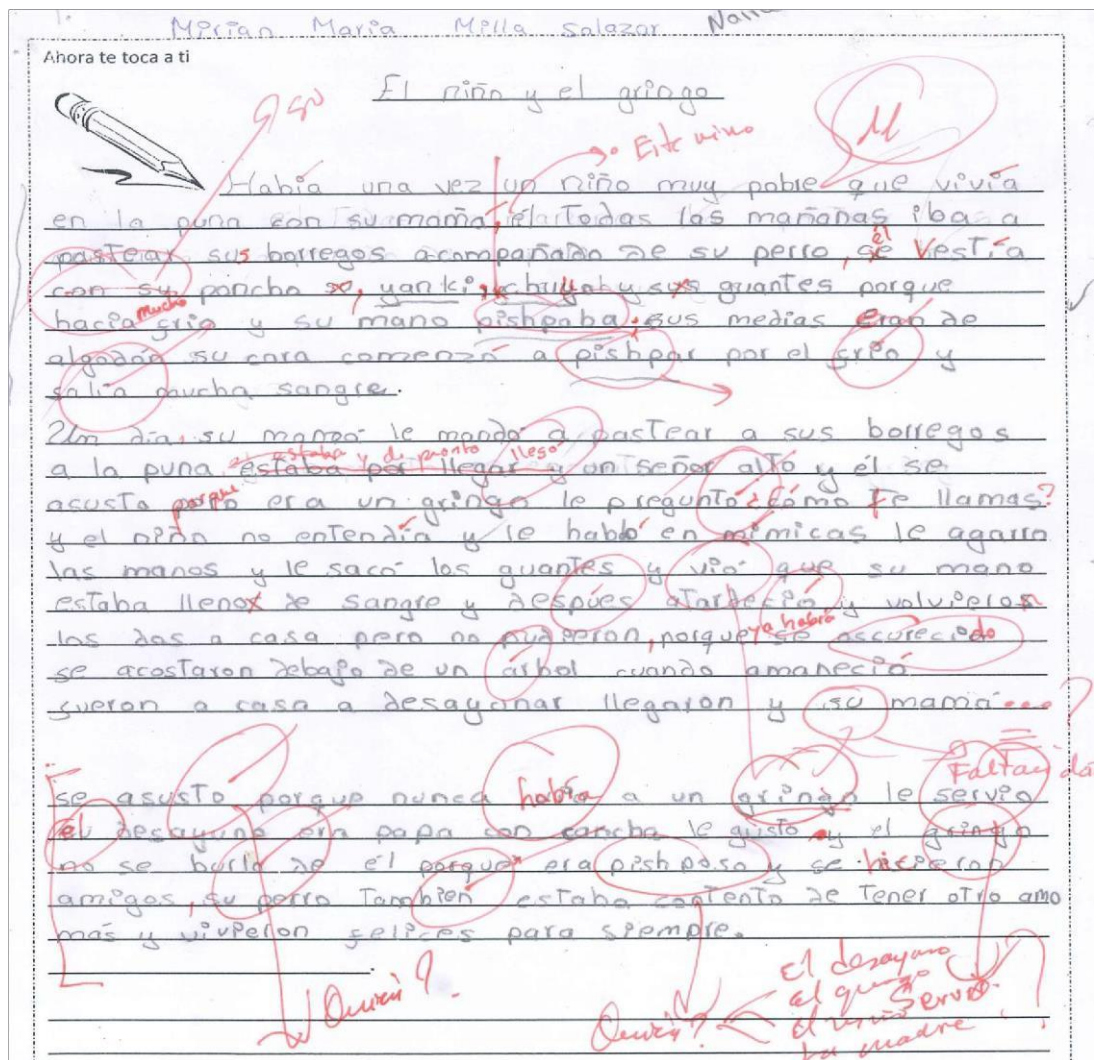 Mirian Maria Milla Salazar
Ahora te toca a ti
El niño y el gringo
Este niño
M
Había una vez un niño muy pobre que vivía
en la puna con su mamá, el Todas las mañanas iba a
pastear sus borregos acompañado de su perro, él vestía
con su poncho, yanki, chullo y sus guantes porque
hacía mucho frio y su mano pishpaba, sus medias eran de
algodón su cara comenzó a pishpar por el frio y
salía mucha sangre.
Un dia, su mamá le mandó a pastear a sus borregos
estaba y de pronto llegó
a la puna estaba por llegar y un señor alto y él se
asusto porque era un gringo le preguntó ¿cómo te llamas?
y el niño no entendía y le habló en mímicas le agarro
las manos y le sacó los guantes y vió que su mano
estaba lleno de sangre y despúes atardeció y volvieron
ya había
los dos a casa pero no pudieron, porque se oscurecido
se acostaron debajo de un árbol cuando amaneció
fueron a casa a desayunar llegaron y su mamá...?
Faltan
se asusto porque nunca había a un gringo le servio
el desayuno era papa con cancha le gusto y el gringo
no se burlo de él porque era pishposo y se hicieron
amigos, su perro Tambien estaba contento de tener otro amo
más y vivieron felices para siempre.
Quién?
Quién?
El desayuno
el gringo
el niño
La madre
Servio
?